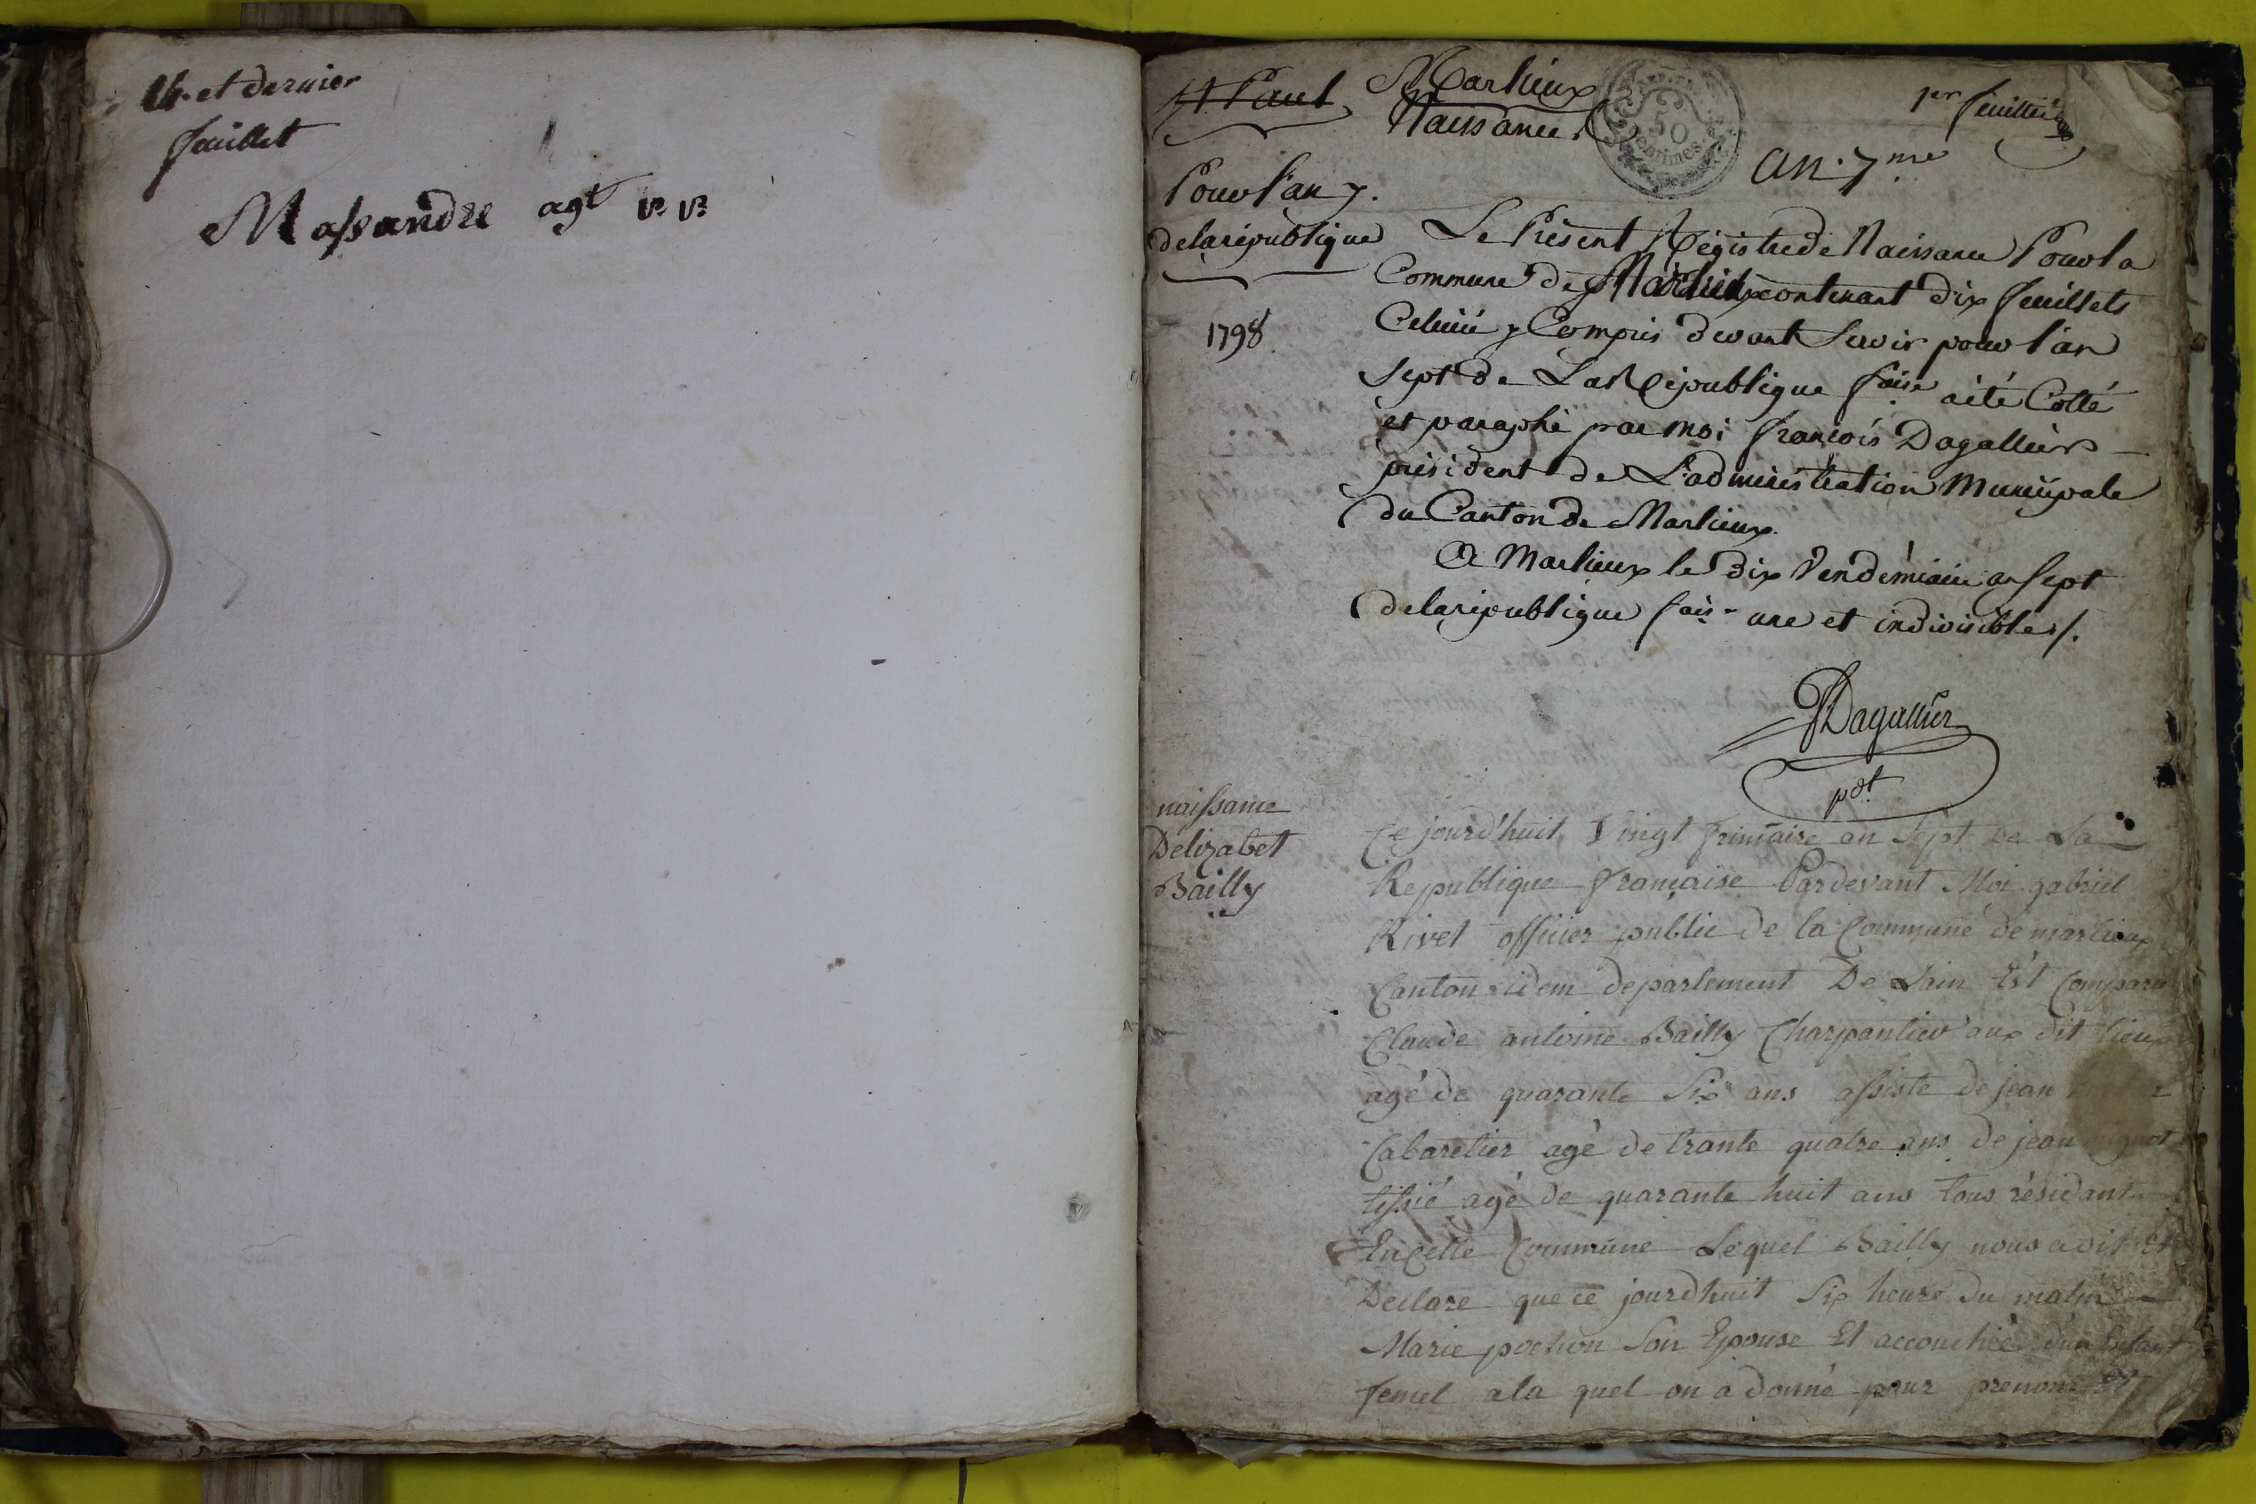 14. et dernier
feuillet
Massandre agt
St Paul
Marlieux
Naissance
50
Centimes
1er feuillet
an. 7.me
Pour l'an 7.
de la république
1798
Le Présent Régistre de Naissance Pour la
Commune de Marlieux contenant dix feuillets
Celuici y Compris devant Servir pour l'an
Sept de La République f.aise a été Cotté
et paraphé par moi françois Dagallier
président de L'administration Municipale
du Canton de Marlieux.
A Marlieux le dix Vendémiaire an Sept
de la république f.ais.e une et indivisible /.
Dagallier
pdt
naissance
Delizabet
Bailly
Ce jourd'huit Vingt frimaire an Sept de La
Republique française Pardevant Moi gabriel
Rivet officier public de la Commune de marlieux
Canton idem departement De Lain Est Comparu
Claude antoine Bailly Charpantier aux dit lieux
agé de quarante Six ans assiste de jean
Cabaretier agé de trante quatre ans de jean
tissié agé de quarante huit ans tous résidant
En Cette Commune Lequel Bailly nous a dit Et
Declare que ce jourdhuit Six heure du matin
Marie pochon Son Epouse Et accouchée d'un Enfant
femel a la quel on a donné pour prenom